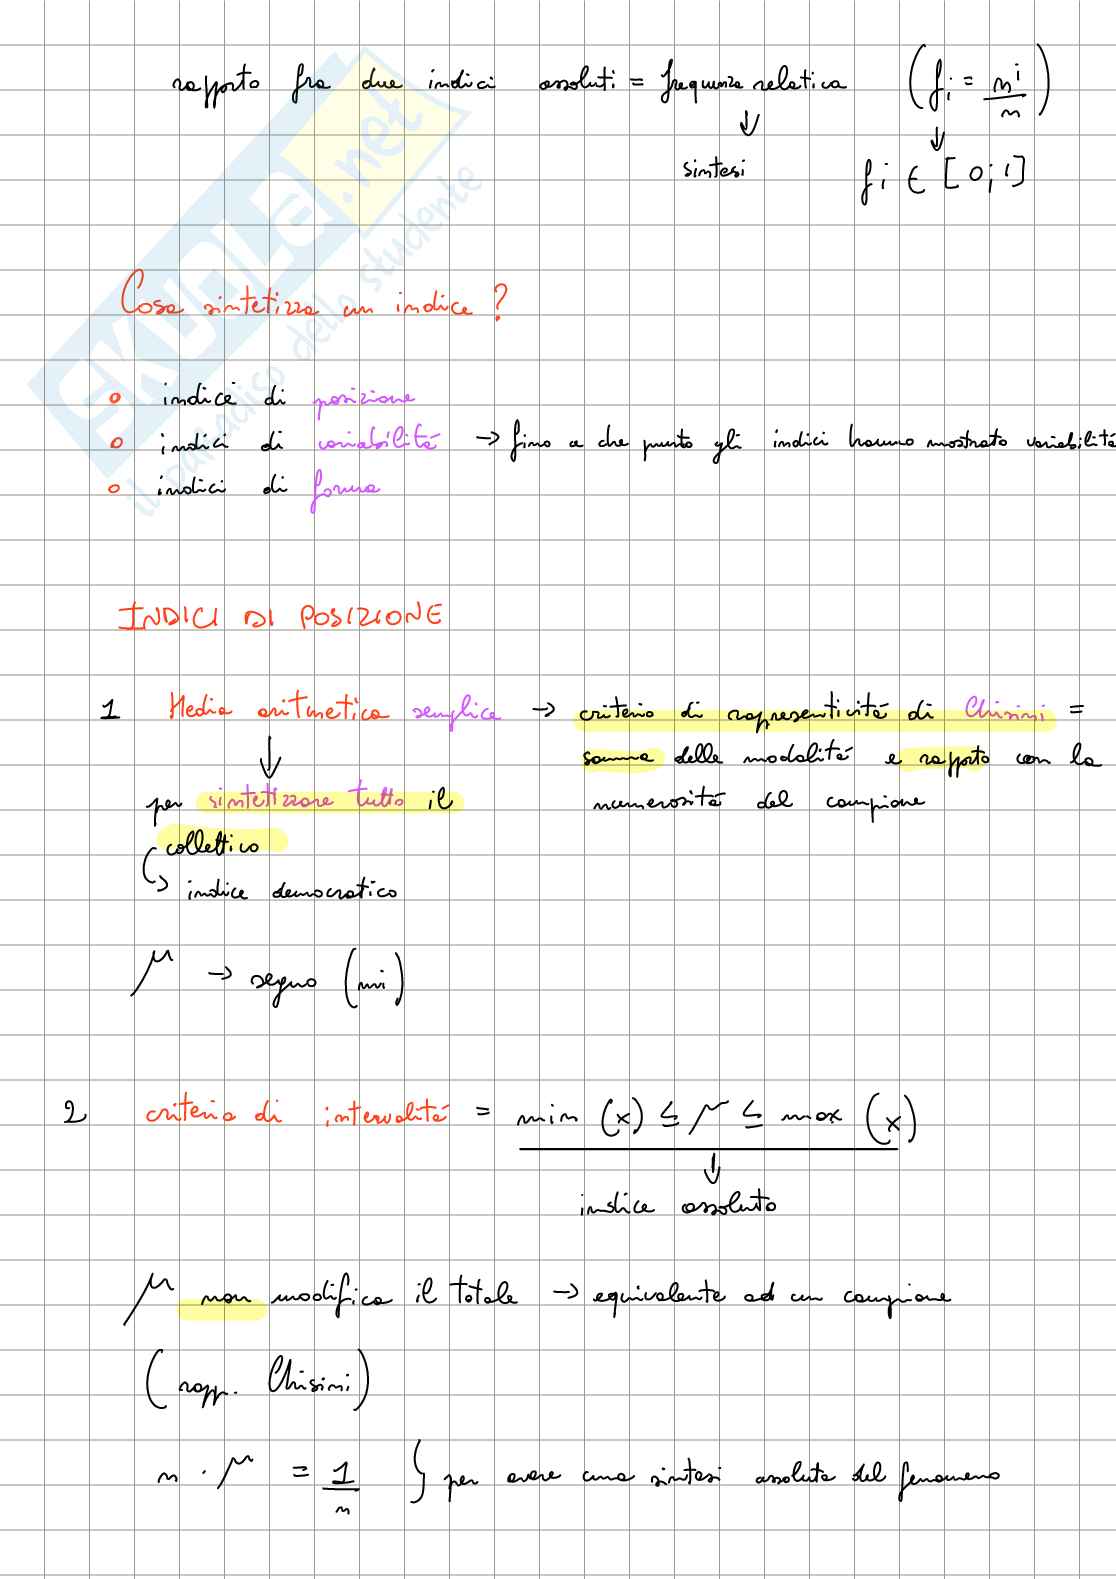 rapporto fra due indici assoluti = frequenza relativa (fi = ni/n)
↓ ↓
sintesi fi ∈ [0;1]
Cosa sintetizza un indice?
o indice di posizione
o indici di variabilità → fino a che punto gli indici hanno mostrato variabilità
o indici di forma
INDICI DI POSIZIONE
1 Media aritmetica semplice → criterio di rappresenticità di Chisini =
somma delle modalità e rapporto con la
↓
per sintetizzare tutto il numerosità del campione
collettivo
↳ indice democratico
μ → segno (mi)
2 criterio di internalità = min (x) ≤ μ ≤ max (x)
↓
indice assoluto
μ non modifica il totale → equivalente ad un campione
(rapp. Chisini)
n · μ = 1/n } per avere una sintesi assoluta del fenomeno
SKUOLA.net
il paradiso dello studente